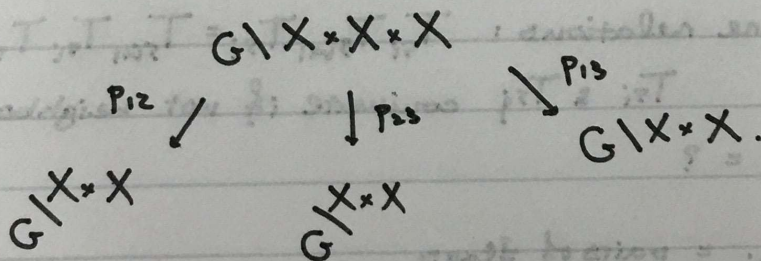 G\X×X×X
p12 p23 p13
G\X×X.
G\X×X G\X×X